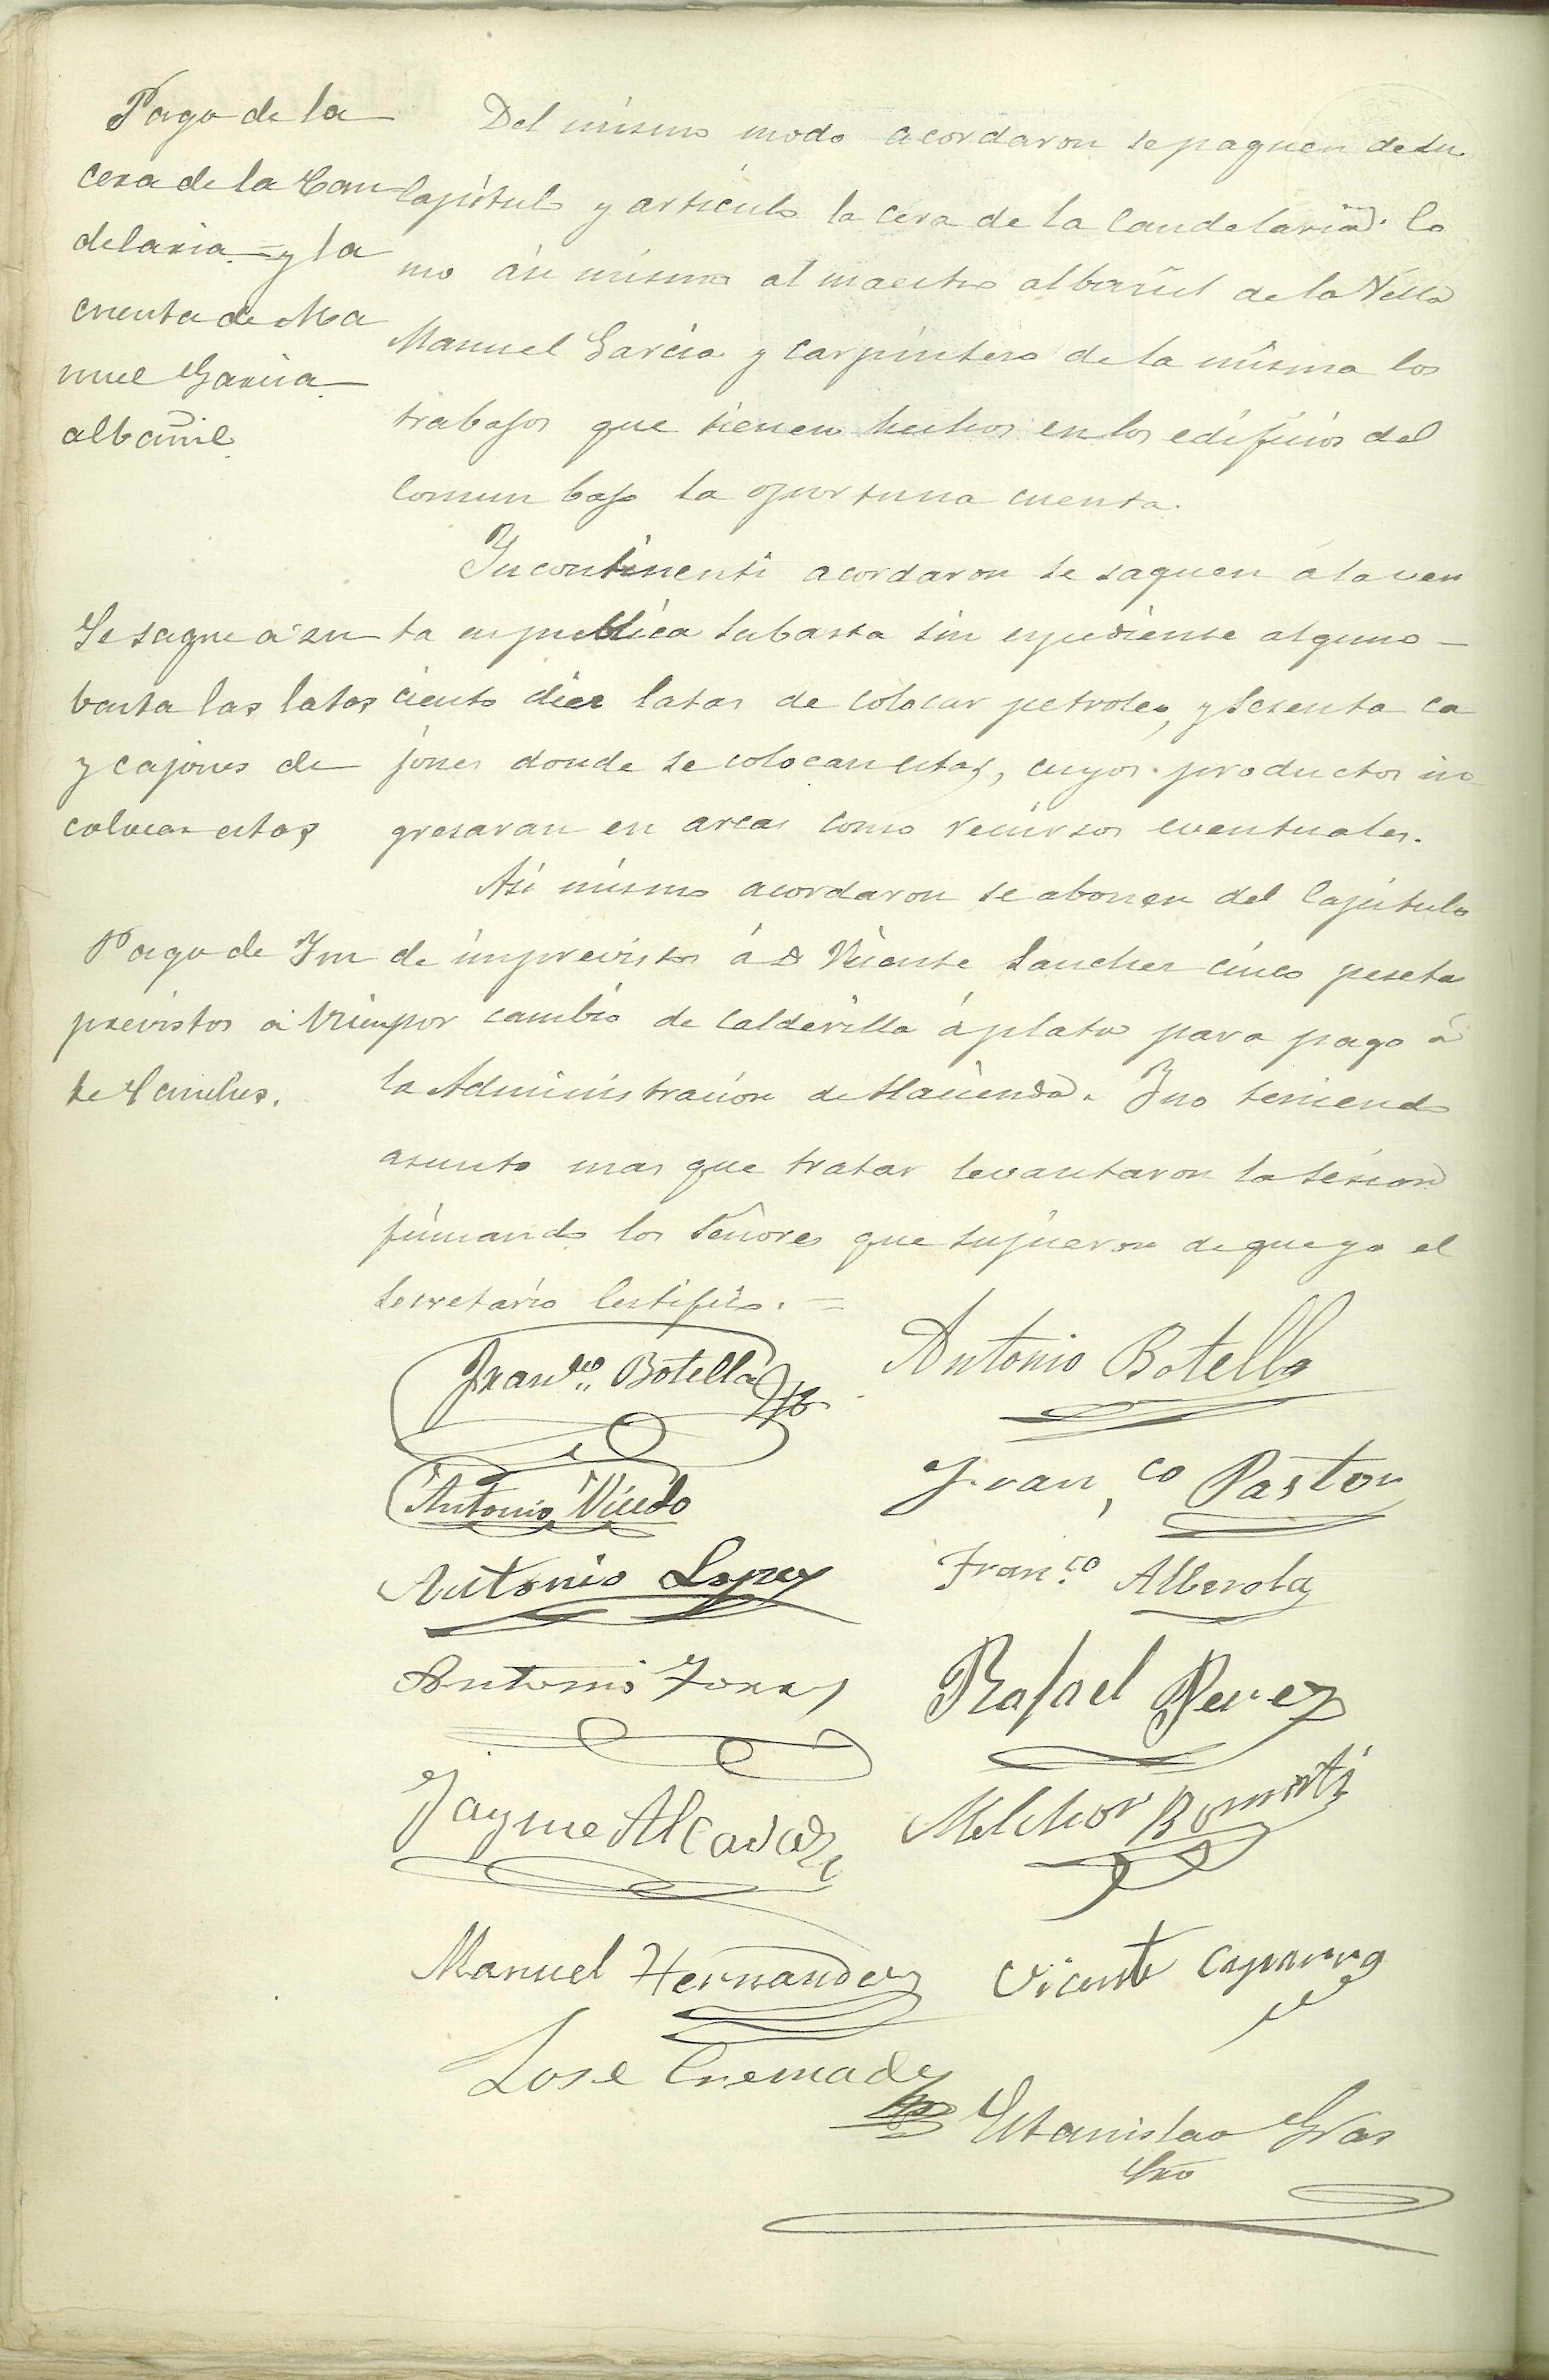 Pago de la
cera de la Can
delaria = y la
cuenta de Ma
nuel Garcia
albañil.
Del mismo modo acordaron se paguen de su
Capitulo y articulo la cera de la Candelaria. Co
mo asi mismo al maestro albañil de la Villa
Manuel Garcia y carpintero de la misma los
trabajos que tienen hechos en los edificios del
comun bajo la oportuna cuenta.
Se saque a su
basta las latas
y cajones de
colocar estas
Incontinenti acordaron se saquen a la ven
ta en publica subasta sin espediente alguno —
ciento diez latas de colocar petroleo, y sesenta ca
jones donde se colocan estas, cuyos productos in
gresaran en arcas como recursos eventuales.
Pago de Im
previstos a Vicen
te Sanches.
Asi mismo acordaron se abonen del Capitulo
de imprevistos á D Vicente Sanchez cinco peseta
por cambio de calderilla á plata para pago á
la Administracion de Hacienda. Y no teniendo
asunto mas que tratar levantaron la sesion
firmando los Señores que supieron de que yo el
Secretario Certifico. =
Franco. Botella
Antonio Botella
Antonio
Franco Pastor
Antonio Lopez
Franco Alberola
Antonio Torres
Rafael Perez
Jayme Alcaraz
Melchor Bonmati
Manuel Hernandez
Vicente
Jose Cremades
Estanislao Gras
Srio